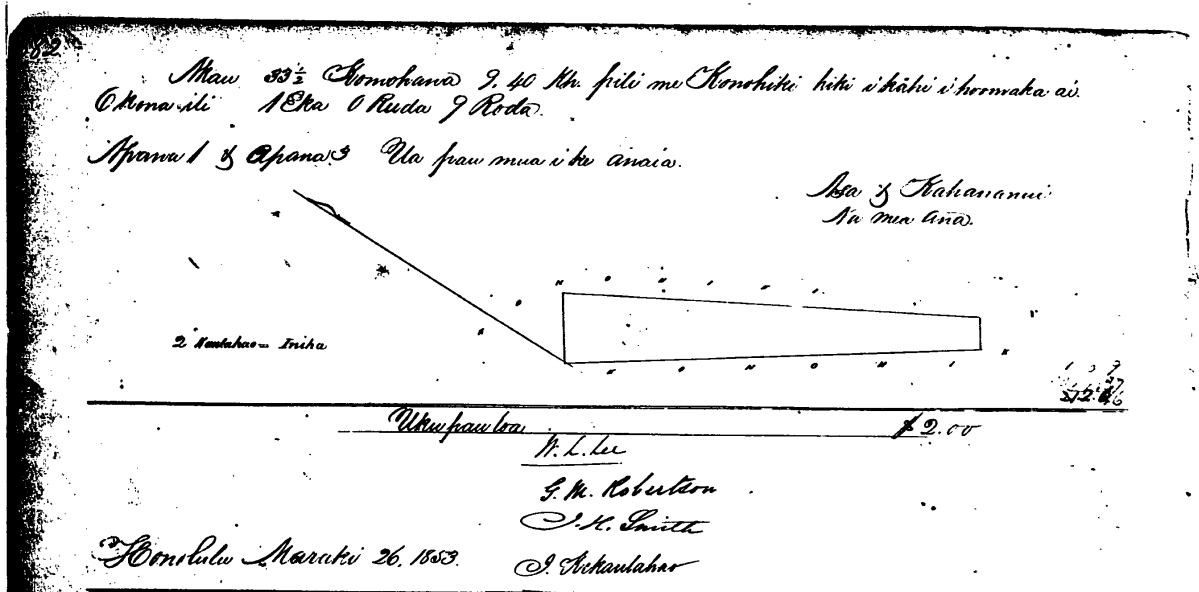 82
Akau 33½ Komohana 9.40 Kh. pili me Konohiki hiki i kahi i hoomaka ai.
Okona ili 1 Eka 0 Ruda 9 Roda.
Apana 1 & Apana 3 Ua pau mua i ke anaia.
Asa & Kahananui
Na mea ana.
K O N O H I K I
2 Kaulahao = Iniha
K O N O H I K I
Uku pau loa $2.00
W. L. Lee
G. M. Robertson
J. H. Smith
Honolulu Maraki 26, 1853. J. Kekaulahao